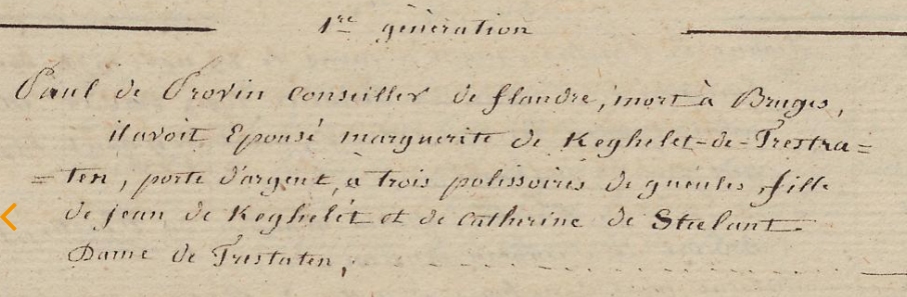 1re géneration
Paul de Provin conseiller de flandre, mort à Bruges,
il avoit Epousé marguerite de Keghelet-de-Trestra=
=ten, porte d'argent, à trois polissoires de gueules, fille
de jean de Keghelét et de catherine de Steelant
Dame de Trestaten,